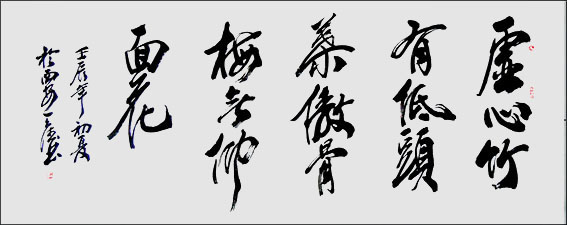 虛心竹
有低頭
葉傲骨
梅無仰
面花
壬辰年初夏
於西安